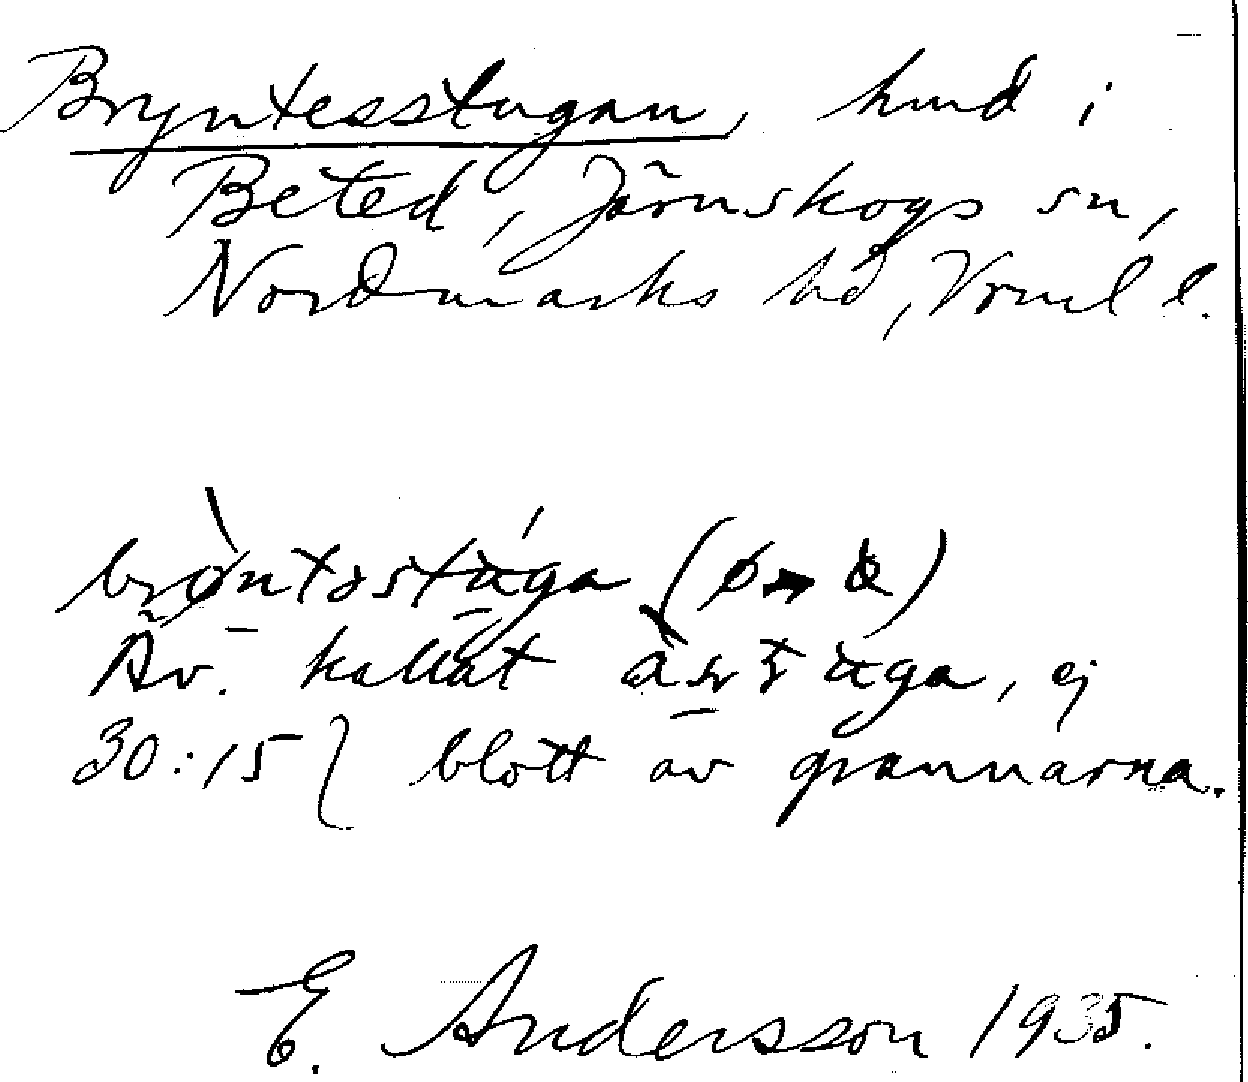 Bryntesstugan, hmd i
Beted, Järnskogs sn,
Nordmarks hd, Vrml l.
brøntəstuga (ø→
Äv. kallat åsstuga, ej
30:15} blott av grannarna.
E. Andersson 1935.